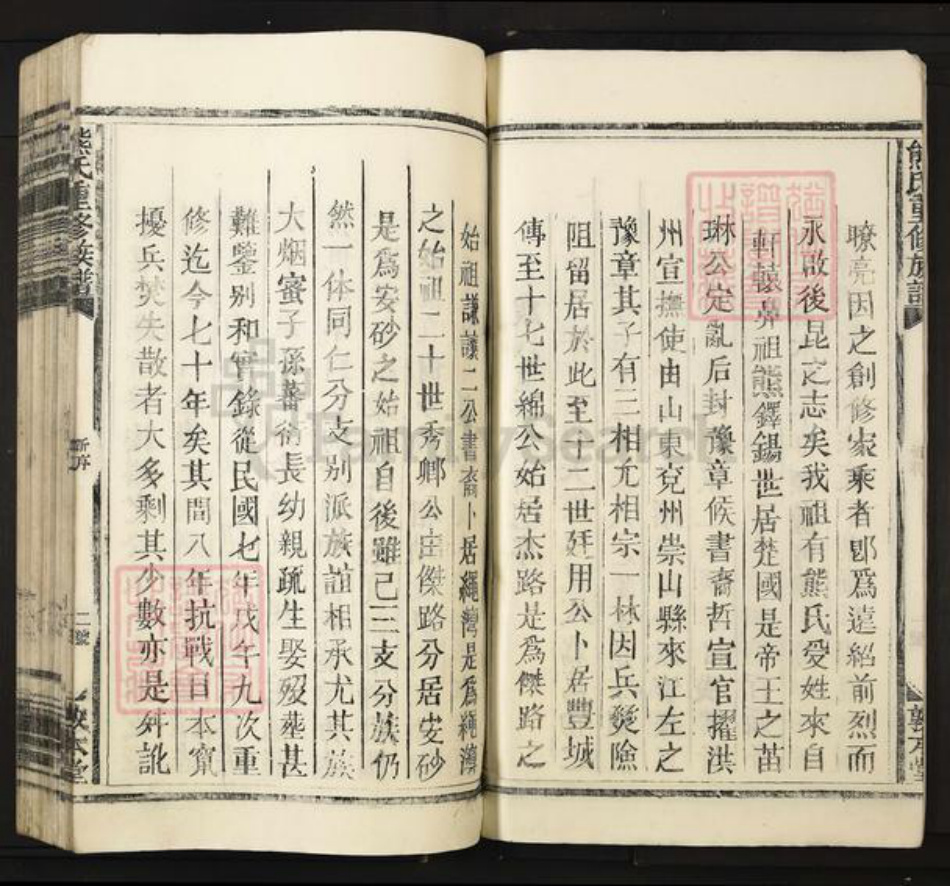 瞭亮因之創修家乘者即爲遠紹前烈而
永啟後昆之志矣我祖有熊氏受姓來自
軒轅鼻祖熊鐸錫世居楚國是帝王之苗
琳公定亂后封豫章候書裔哲宣官擢洪
州宣撫使由山東兗州崇山縣來江左之
豫章其子有三相尤相宗一林因兵燹險
阻留居於此至十二世廷用公卜居豐城
傳至十七世綿公始居杰路是爲傑路之
始祖謙讓二公書裔卜居繩灣是爲繩灣
之始祖二十世秀卿公由傑路分居安砂
是爲安砂之始祖自後雖已三支分族仍
然一体同仁分支别派族誼相承尤其族
大烟蜜子孫蕃衍長幼親疏生娶殁塟甚
難鑒别和實錄從民國七年戊午九次重
修迄今七十年矣其間八年抗戰日本竄
擾兵焚失散者大多剩其少數亦是舛訛
熊氏重修族譜
新序
二號
敦本堂
熊氏重修族譜
敦本堂
FamilySearch